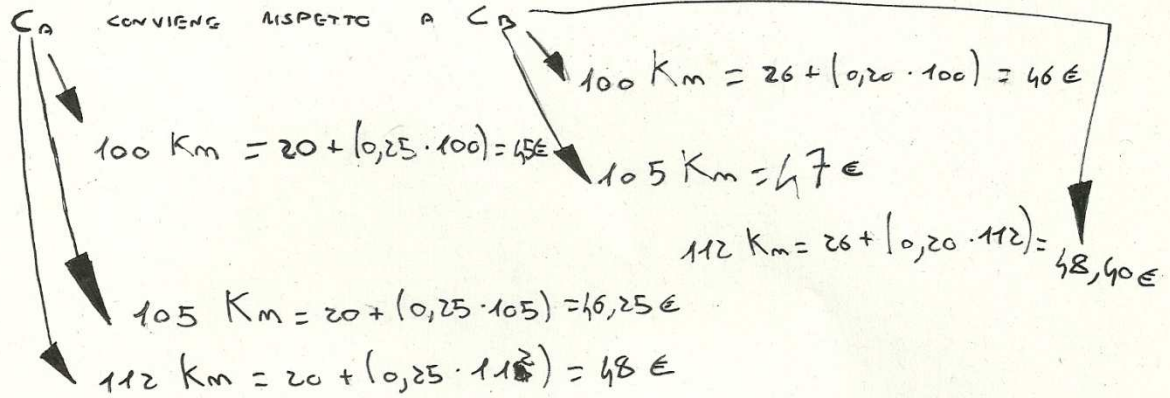 CA CONVIENE RISPETTO A CB
100 Km = 26 + (0,20 · 100) = 46 €
100 Km = 20 + (0,25 · 100) = 45€
105 Km = 47 €
112 Km = 26 + (0,20 · 112) = 48,40 €
105 Km = 20 + (0,25 · 105) = 46,25 €
112 Km = 20 + (0,25 · 112) = 48 €